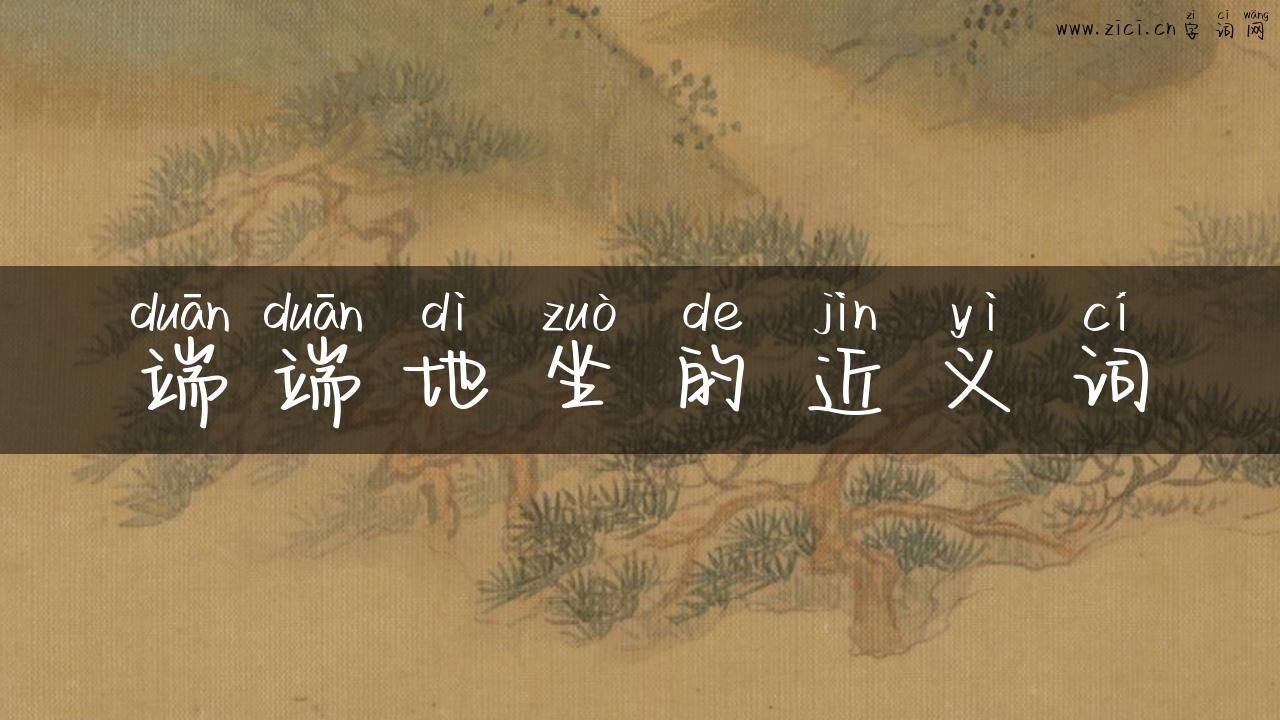 zì cí wǎng
www.zici.cn 字词网
duān duān dì zuò de jìn yì cí
端端地坐的近义词